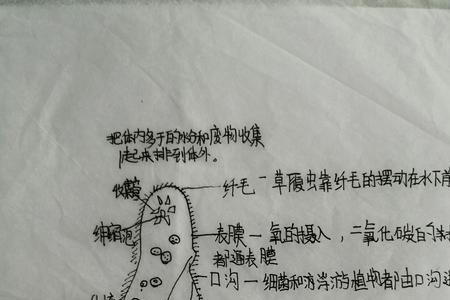 把体内多于的水份和废物收集
起来排到体外。
收集管
纤毛一草履虫靠纤毛的摆动在水下前
伸缩泡
表膜一氧的摄入，二氧化碳的
都通表膜
口沟一细菌和浮游植物都由口沟进